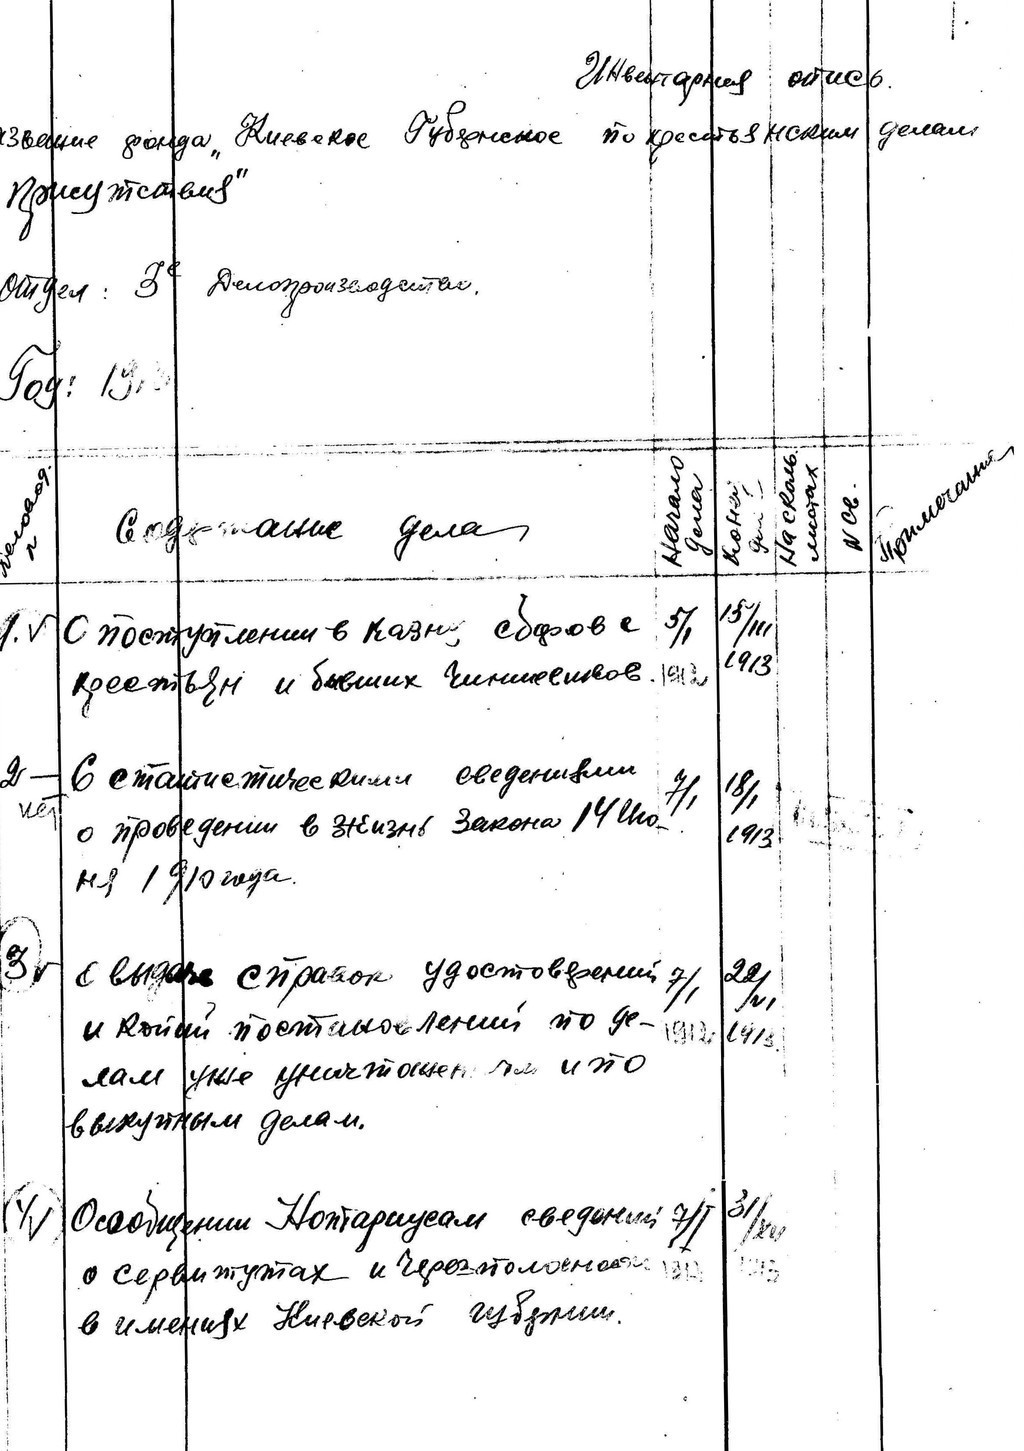 Инвентарная опись.
звание фонда „Киевское Губернское по крестьянским делам
Присутствия"
Отдел: 3е Делопроизводство.
Год: 1913
Содержание дела
Начало дела
Конец дела
На сколь. листах
N св.
Примечания
1. V О поступлении в казну сборов с 5/I 15/III
крестьян и бывших чиншевиков. 1912 1913
2 — С статистическими сведениями 7/I 18/I
нет о проведении в жизнь Закона 14 Ию- 1913
ня 1910 года.
3 V О выдаче справок удостоверений 7/I 22/VI
и копий постановлений по де- 1912 1913
лам уже уничтоженным и по
выкупным делам.
4 V О сообщении Нотариусам сведений 7/I 31/XII
о сервитутах и черезполосности 1913
в имениях Киевской губернии.